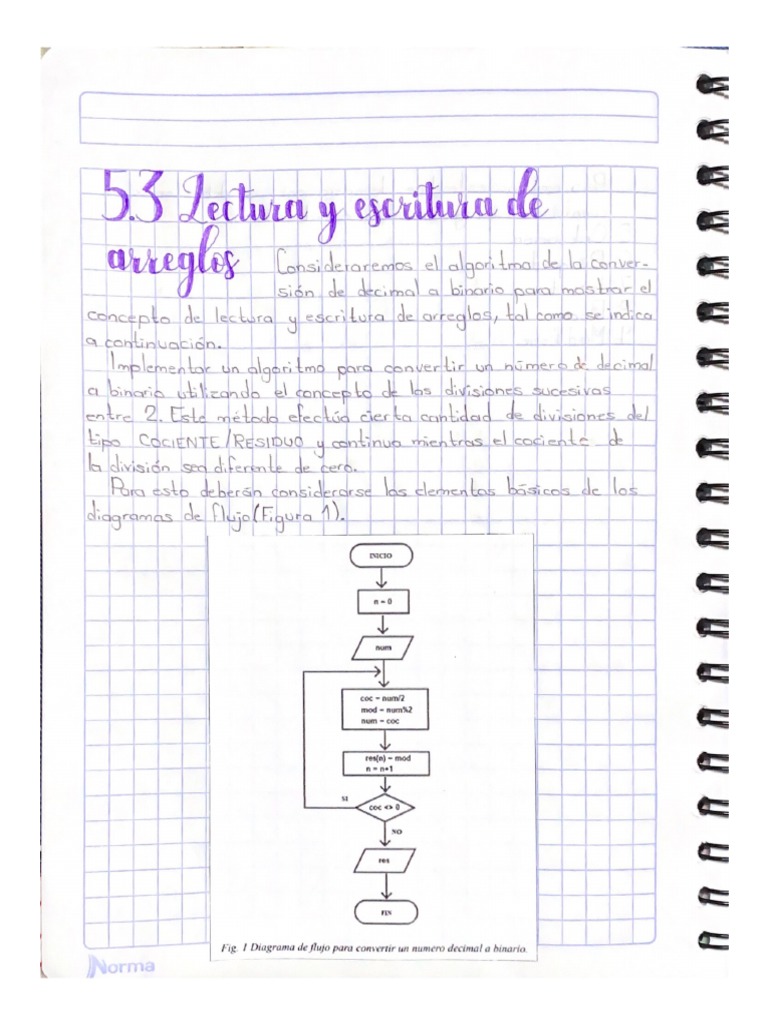 5.3 Lectura y escritura de
arreglos
Consideraremos el algoritmo de la conver-
sión de decimal a binario para mostrar el
concepto de lectura y escritura de arreglos, tal como se indica
a continuación.
Implementar un algoritmo para convertir un número de decimal
a binario utilizando el concepto de las divisiones sucesivas
entre 2. Este método efectúa cierta cantidad de divisiones del
tipo COCIENTE/RESIDUO y continua mientras el cociente de
la división sea diferente de cero.
Para esto deberán considerarse los elementos básicos de los
diagramas de flujo(Figura 1).
INICIO
n = 0
num
coc = num/2
mod = num%2
num = coc
res(n) = mod
n = n+1
SI
coc <> 0
NO
res
FIN
Fig. 1 Diagrama de flujo para convertir un numero decimal a binario.
Norma